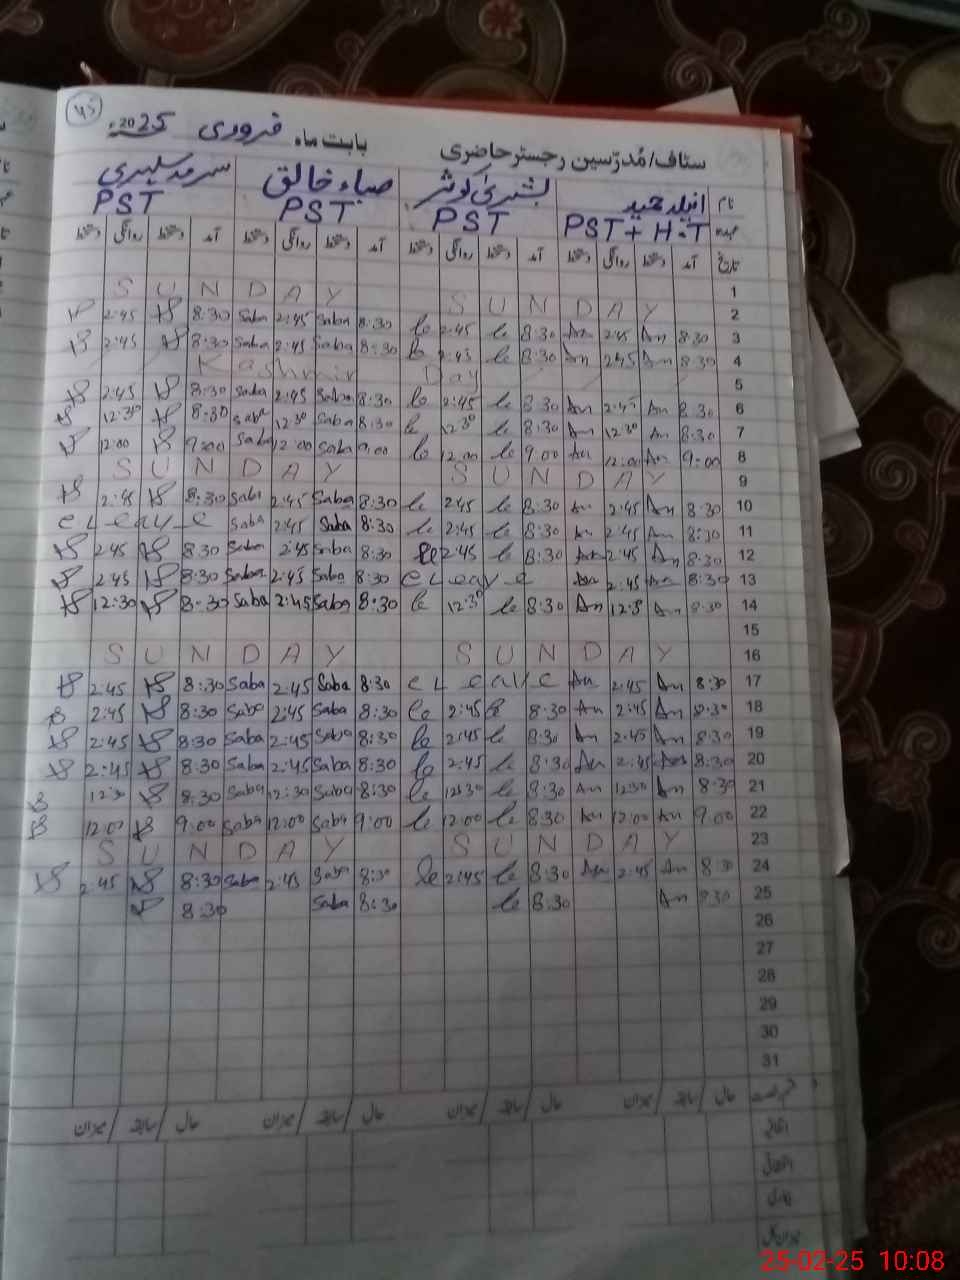 ۴۵
سٹاف/مُدرّسین رجسٹر حاضری بابت ماہ فروری 2025ء
نام انیلہ حمید بشریٰ کوثر صباء خالق سرمد سلہری
عہدہ PST + H.T PST PST PST
تاریخ آمد دستخط روانگی دستخط آمد دستخط روانگی دستخط آمد دستخط روانگی دستخط آمد دستخط روانگی دستخط
1
S U N D A Y S U N D A Y 2
2:45 8:30 Saba 2:45 Saba 8:30 le 2:45 le 8:30 An 2:45 An 8:30 3
2:45 8:30 Saba 2:45 Saba 8:30 le 2:45 le 8:30 An 2:45 An 8:30 4
Kashmir Day 5
2:45 8:30 Saba 2:45 Saba 8:30 le 2:45 le 8:30 An 2:45 An 8:30 6
12:30 8:30 Saba 12:30 Saba 8:30 le 12:30 le 8:30 An 12:30 An 8:30 7
12:00 9:00 Saba 12:00 Saba 9:00 le 12:00 le 9:00 An 12:00 An 9:00 8
S U N D A Y S U N D A Y 9
2:45 8:30 Saba 2:45 Saba 8:30 le 2:45 le 8:30 An 2:45 An 8:30 10
c Leave Saba 2:45 Saba 8:30 le 2:45 le 8:30 An 2:45 An 8:30 11
2:45 8:30 Saba 2:45 Saba 8:30 le 2:45 le 8:30 An 2:45 An 8:30 12
2:45 8:30 Saba 2:45 Saba 8:30 c Leave An 2:45 An 8:30 13
12:30 8:30 Saba 2:45 Saba 8:30 le 12:30 le 8:30 An 12:3 An 8:30 14
15
S U N D A Y S U N D A Y 16
2:45 8:30 Saba 2:45 Saba 8:30 c Leave An 2:45 An 8:30 17
2:45 8:30 Saba 2:45 Saba 8:30 le 2:45 le 8:30 An 2:45 An 8:30 18
2:45 8:30 Saba 2:45 Saba 8:30 le 2:45 le 8:30 An 2:45 An 8:30 19
2:45 8:30 Saba 2:45 Saba 8:30 le 2:45 le 8:30 An 2:45 An 8:30 20
12:30 8:30 Saba 12:30 Saba 8:30 le 12:30 le 8:30 An 12:30 An 8:30 21
12:00 9:00 Saba 12:00 Saba 9:00 le 12:00 le 8:30 An 12:00 An 9:00 22
S U N D A Y S U N D A Y 23
2:45 8:30 Saba 2:45 Saba 8:30 le 2:45 le 8:30 An 2:45 An 8:30 24
8:30 Saba 8:30 le 8:30 An 8:30 25
26
27
28
29
30
31
حال / سابقہ / میزان حال / سابقہ / میزان حال / سابقہ / میزان حال / سابقہ / میزان
اتفاقی
میزان کل
25-02-25 10:08